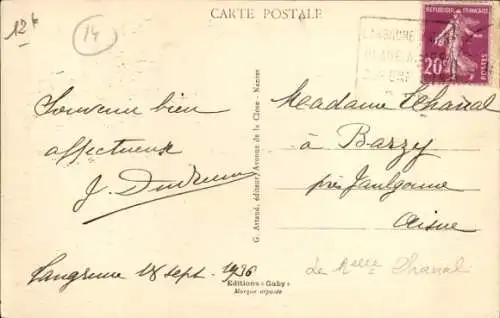 CARTE POSTALE
12 14
LANGRUNE
PLAGE
RÉPUBLIQUE FRANÇAISE
20c
POSTES
Souvenir bien
affectueux
Langrune 18 sept. 1936
G. Artaud, éditeur, Avenue de la Close - Nantes
Editions "Gaby"
Marque déposée
Madame Chanal
à Barzy
près Jaulgonne
Aisne
De Melle Chanal